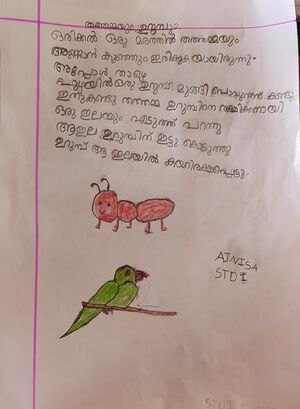 തത്തമ്മയും ഉറുമ്പും
ഒരിക്കൽ ഒരു മരത്തിൽ തത്തമ്മയും
അണ്ണാൻ കുഞ്ഞും ഇരിക്കുകയായിരുന്നു.
അപ്പോൾ താഴെ
പുഴയിൽ ഒരു ഉറുമ്പ് മുങ്ങി പോകുന്നത് കണ്ടു
ഇതുകണ്ടു തത്തമ്മ ഉറുമ്പിനെ രക്ഷിക്കാനായി
ഒരു ഇലയും എടുത്ത് പറന്നു
ആഇല ഉറുമ്പിന് ഇട്ടു കൊടുത്തു
ഉറുമ്പ് ആ ഇലയിൽ കയറിരക്ഷപ്പെട്ടും
AJNISA
STD I